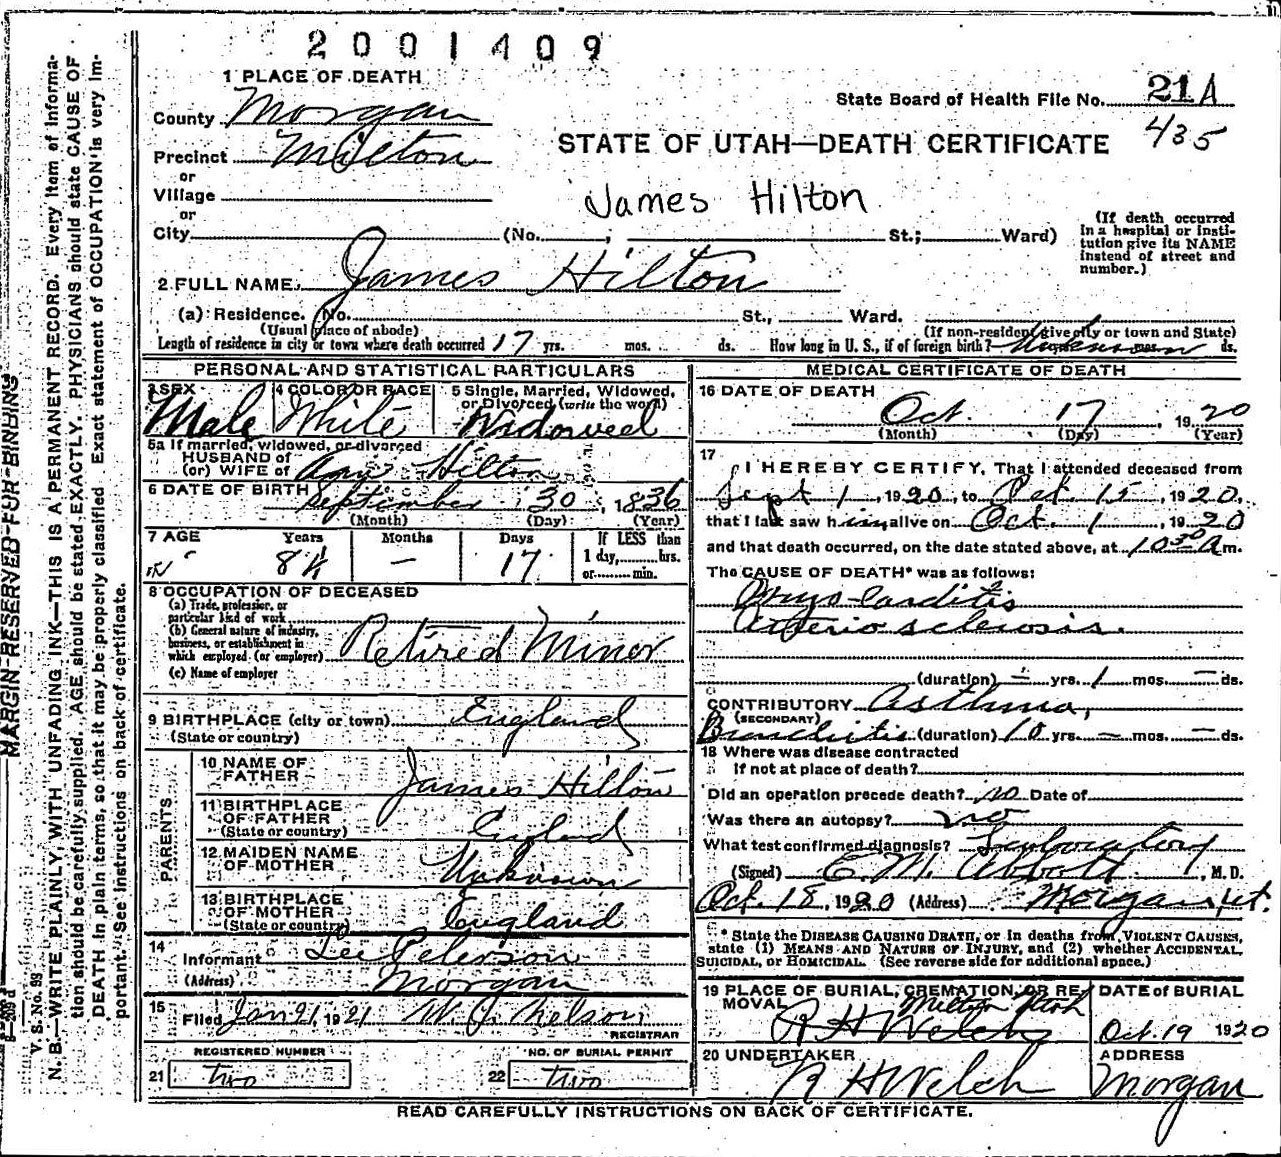 2001409
1 PLACE OF DEATH
State Board of Health File No. 21A
435
County Morgan
STATE OF UTAH—DEATH CERTIFICATE
Precinct Milton
or
Village
James Hilton
or
City (No. , St.; Ward)
(If death occurred in a hospital or institution give its NAME instead of street and number.)
2 FULL NAME James Hilton
(a) Residence. (No. St., Ward.
(Usual place of abode) (If non-resident give city or town and State)
Length of residence in city or town where death occurred 17 yrs. mos. ds. How long in U. S., if of foreign birth? Unknown ds.
PERSONAL AND STATISTICAL PARTICULARS
3 SEX Male
4 COLOR OR RACE White
5 Single, Married, Widowed, or Divorced (write the word) Widowed
5a If married, widowed, or divorced
HUSBAND of
(or) WIFE of Ann Hilton
6 DATE OF BIRTH September 30, 1836
(Month) (Day) (Year)
7 AGE Years Months Days If LESS than
84 — 17 1 day, hrs.
or min.
8 OCCUPATION OF DECEASED
(a) Trade, profession, or particular kind of work
(b) General nature of industry, business, or establishment in which employed (or employer) Retired Miner
(c) Name of employer
9 BIRTHPLACE (city or town) England
(State or country)
PARENTS
10 NAME OF FATHER James Hilton
11 BIRTHPLACE OF FATHER (State or country) England
12 MAIDEN NAME OF MOTHER Unknown
13 BIRTHPLACE OF MOTHER (State or country) England
14
Informant Lee Peterson
(Address) Morgan
15 Filed Jan 21, 1921 W. J. Nelson
REGISTRAR
REGISTERED NUMBER
21 two
NO. OF BURIAL PERMIT
22 two
MEDICAL CERTIFICATE OF DEATH
16 DATE OF DEATH
Oct. 17, 1920
(Month) (Day) (Year)
17
I HEREBY CERTIFY, That I attended deceased from
Sept 1, 1920, to Oct. 15, 1920,
that I last saw him alive on Oct. 1, 1920
and that death occurred, on the date stated above, at 10 30 A m.
The CAUSE OF DEATH* was as follows:
Myo-carditis
Arterio sclerosis.
(duration) — yrs. 1 mos. — ds.
CONTRIBUTORY Asthma,
(SECONDARY)
Bronchitis (duration) 10 yrs. — mos. — ds.
18 Where was disease contracted
If not at place of death?
Did an operation precede death? no Date of
Was there an autopsy? no
What test confirmed diagnosis? Laboratory
(Signed) E. M. Abbott, M. D.
Oct. 18, 1920 (Address) Morgan, Ut.
* State the DISEASE CAUSING DEATH, or in deaths from VIOLENT CAUSES,
state (1) MEANS AND NATURE OF INJURY, and (2) whether ACCIDENTAL,
SUICIDAL, or HOMICIDAL. (See reverse side for additional space.)
19 PLACE OF BURIAL, CREMATION, OR REMOVAL
Milton Utah
R H Welch
DATE of BURIAL
Oct. 19 1920
20 UNDERTAKER
R H Welch
ADDRESS
Morgan
READ CAREFULLY INSTRUCTIONS ON BACK OF CERTIFICATE.
MARGIN RESERVED FOR BINDING
V. S. No. 99
N. B.—WRITE PLAINLY, WITH UNFADING INK—THIS IS A PERMANENT RECORD. Every item of informa-
tion should be carefully supplied. AGE should be stated EXACTLY. PHYSICIANS should state CAUSE OF
DEATH in plain terms, so that it may be properly classified. Exact statement of OCCUPATION is very im-
portant. See instructions on back of certificate.